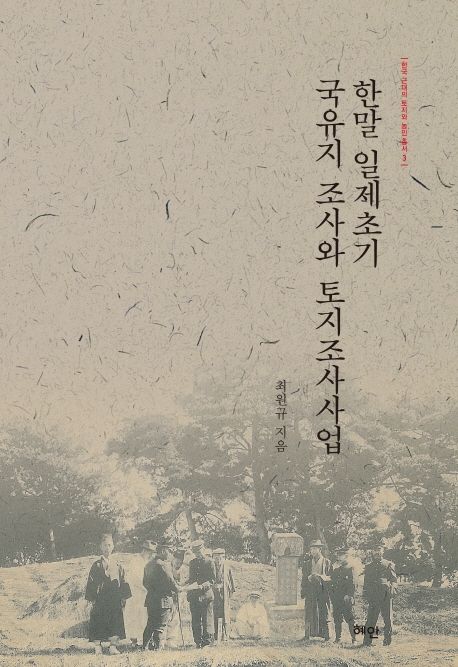 한국 근대의 토지와 농민 총서 3
한말 일제초기
국유지 조사와 토지조사사업
최원규 지음
혜안